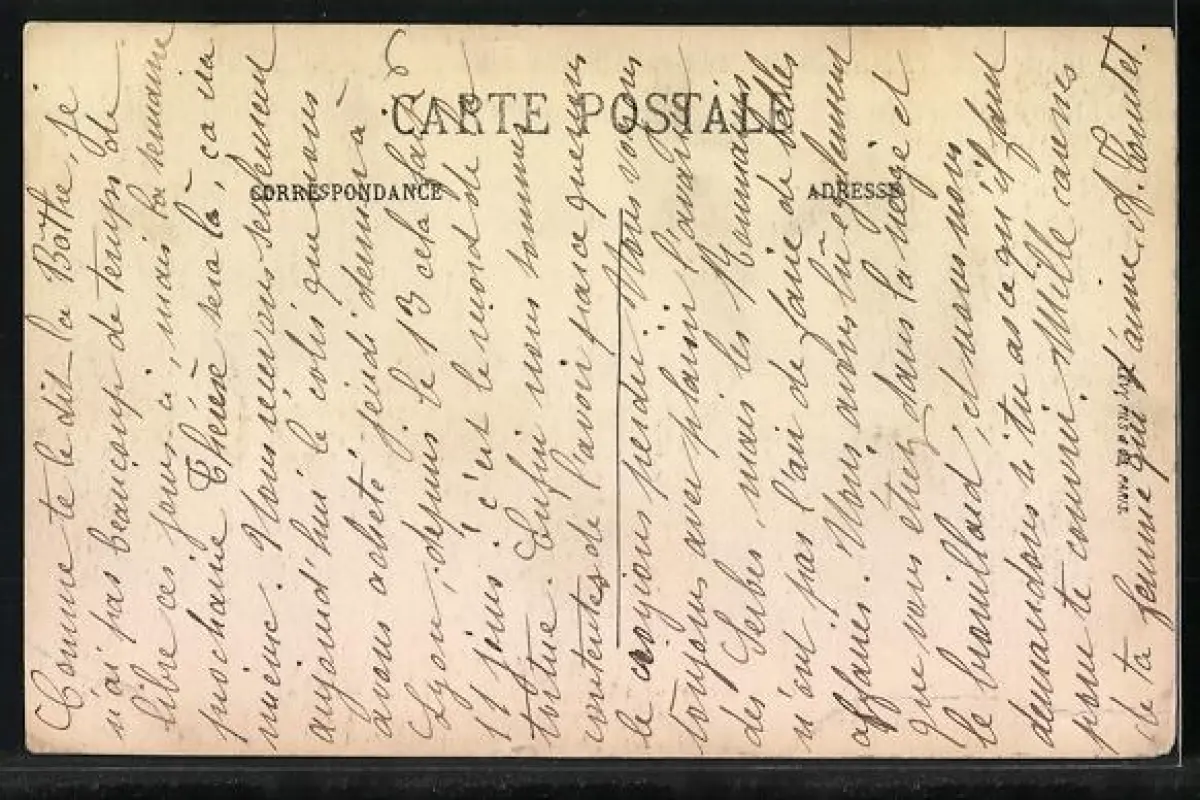 CARTE POSTALE
CORRESPONDANCE
ADRESSE
Comme te le dit la Botte, je
n'ai pas beaucoup de temps de
libre ces jours-ci, mais la semaine
prochaine Thérèse sera là, ça ira
mieux. Nous recevons seulement
aujourd'hui le colis que nous
avons acheté jeudi dernier à
Lyon, depuis le 13 cela fait
11 jours, c'est le record de la
tortue. Enfin nous sommes
contentes de l'avoir parce que nous
le croyions perdu. Nous vous
toujours avec plaisir l'avance
des Serbes, mais les Roumains
n'ont pas l'air de faire de belles
affaires. Nous avons lu également
que vous étiez dans la neige et
le brouillard, et nous nous
demandons si tu as ce qu'il faut
pour te couvrir. Mille caresses
de ta femme qui t'aime